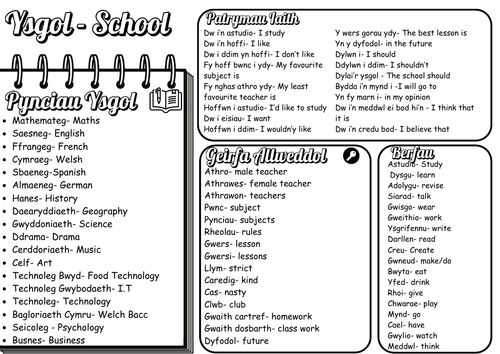 Ysgol - School
Pynciau Ysgol
Mathemateg- Maths
Saesneg- English
Ffrangeg- French
Cymraeg- Welsh
Sbaeneg-Spanish
Almaeneg- German
Hanes- History
Daearyddiaeth- Geography
Gwyddoniaeth- Science
Ddrama- Drama
Cerddoriaeth- Music
Celf- Art
Technoleg Bwyd- Food Technology
Technoleg Gwybodaeth- I.T
Technoleg- Technology
Bagloriaeth Cymru- Welch Bacc
Seicoleg - Psychology
Busnes- Business
Patrymau Iaith
Dw i'n astudio- I study
Dw i'n hoffi- I like
Dw i ddim yn hoffi- I don't like
Fy hoff bwnc i ydy- My favourite
subject is
Fy nghas athro ydy- My least
favourite teacher is
Hoffwn i astudio- I'd like to study
Dw i eisiau- I want
Hoffwn i ddim- I wouldn'y like
Y wers gorau ydy- The best lesson is
Yn y dyfodol- in the future
Dylwn i- I should
Ddylwn i ddim- I shouldn't
Dylai'r ysgol - The school should
Bydda i'n mynd i -I will go to
Yn fy marn i- in my opinion
Dw i'n meddwl ei bod hi'n - I think that
it is
Dw i'n credu bod- I believe that
Geirfa Allweddol
Athro- male teacher
Athrawes- female teacher
Athrawon- teachers
Pwnc- subject
Pynciau- subjects
Rheolau- rules
Gwers- lesson
Gwersi- lessons
Llym- strict
Caredig- kind
Cas- nasty
Clwb- club
Gwaith cartref- homework
Gwaith dosbarth- class work
Dyfodol- future
Berfau
Astudio- Study
Dysgu- learn
Adolygu- revise
Siarad- talk
Gwisgo- wear
Gweithio- work
Ysgrifennu- write
Darllen- read
Creu- Create
Gwneud- make/do
Bwyta- eat
Yfed- drink
Rhoi- give
Chwarae- play
Mynd- go
Cael- have
Gwylio- watch
Meddwl- think